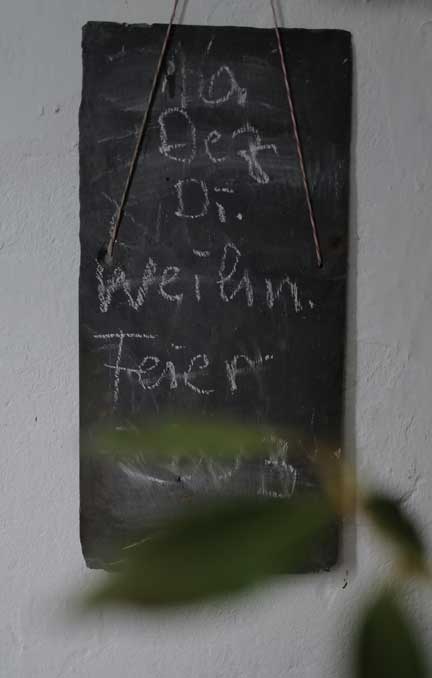 10.
Dez
Di.
Weihn.
Feier